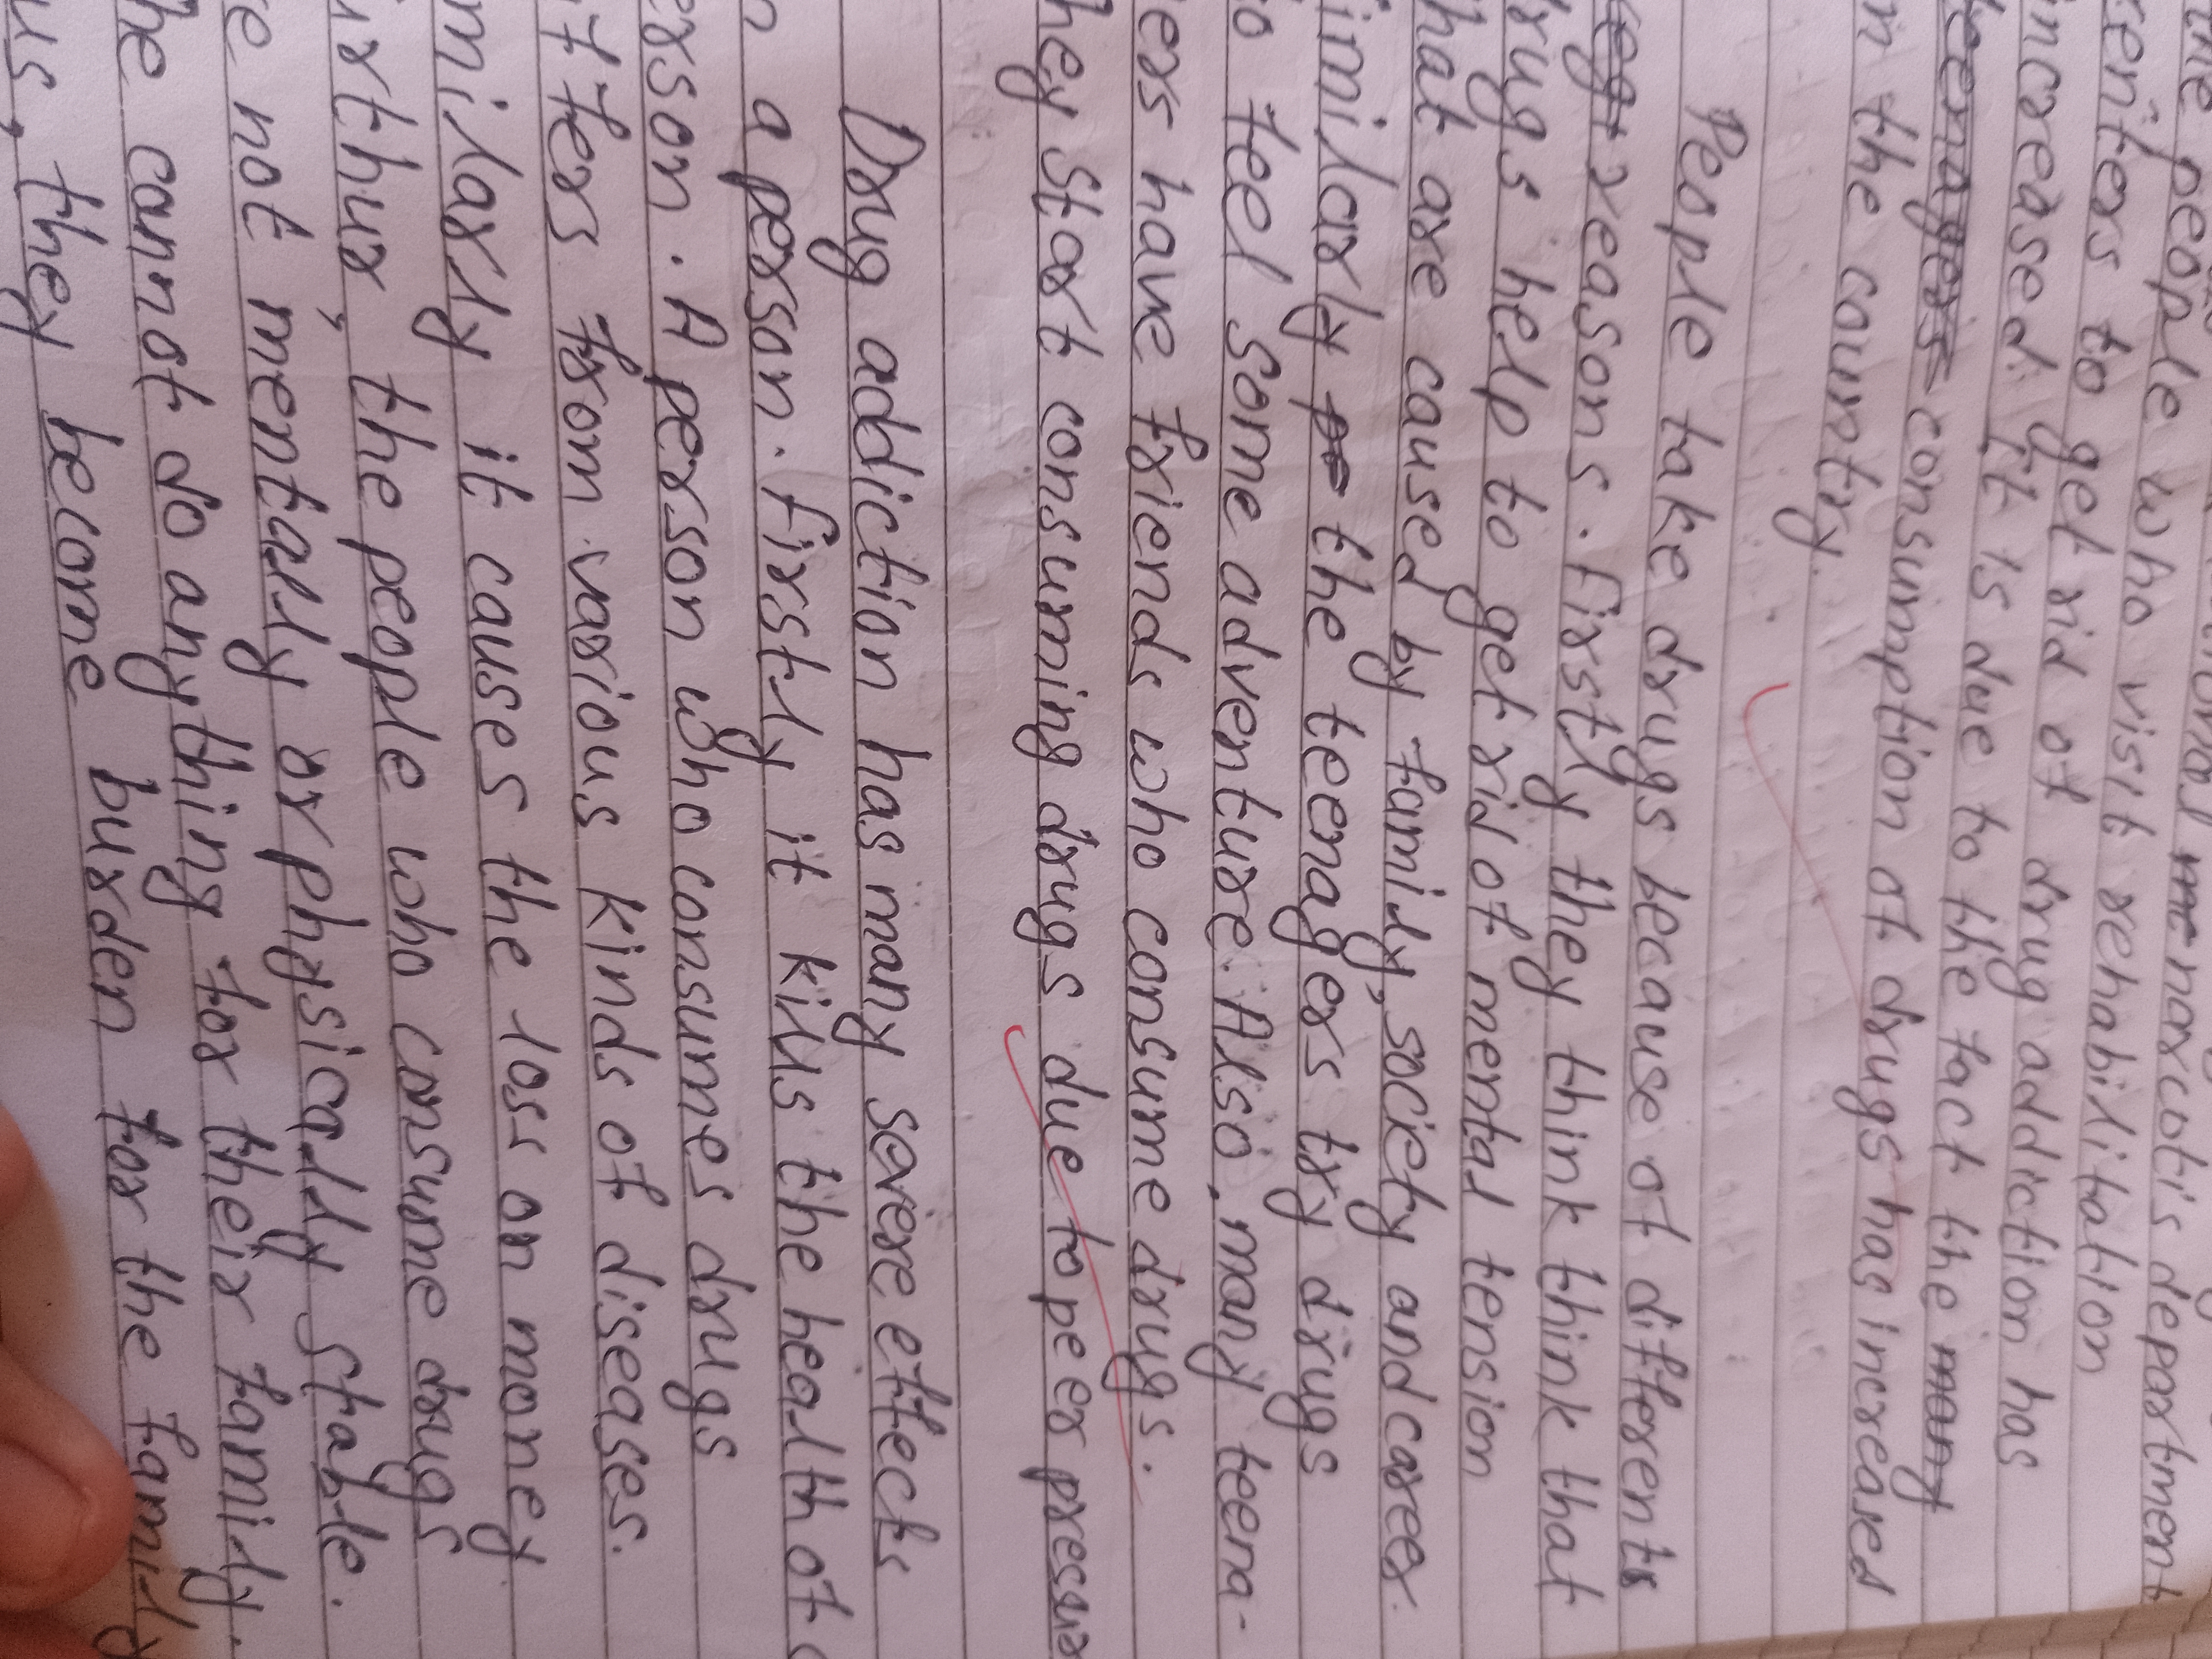 people who visit rehabilitation
to get rid of drug addiction has
increased. It is due to the fact the many
teenagers consumption of drugs has increased
in the country.
People take drugs because of differents
reasons. Firstly they think think that
drugs help to get rid of mental tension
that are caused by family, society and career.
similarly pe the teenagers try drugs
to feel some adventure. Also, many teena-
gers have friends who consume drugs.
they start consuming drugs due to peer pressure
Drug addiction has many severe effects
on a person. Firstly it kills the health of a
person. A person who consumes drugs
suffers from various kinds of diseases.
similarly it causes the loss on money
further, the people who consume drugs
are not mentally or physically stable.
he cannot do anything for their family.
thus, they become burden for the family